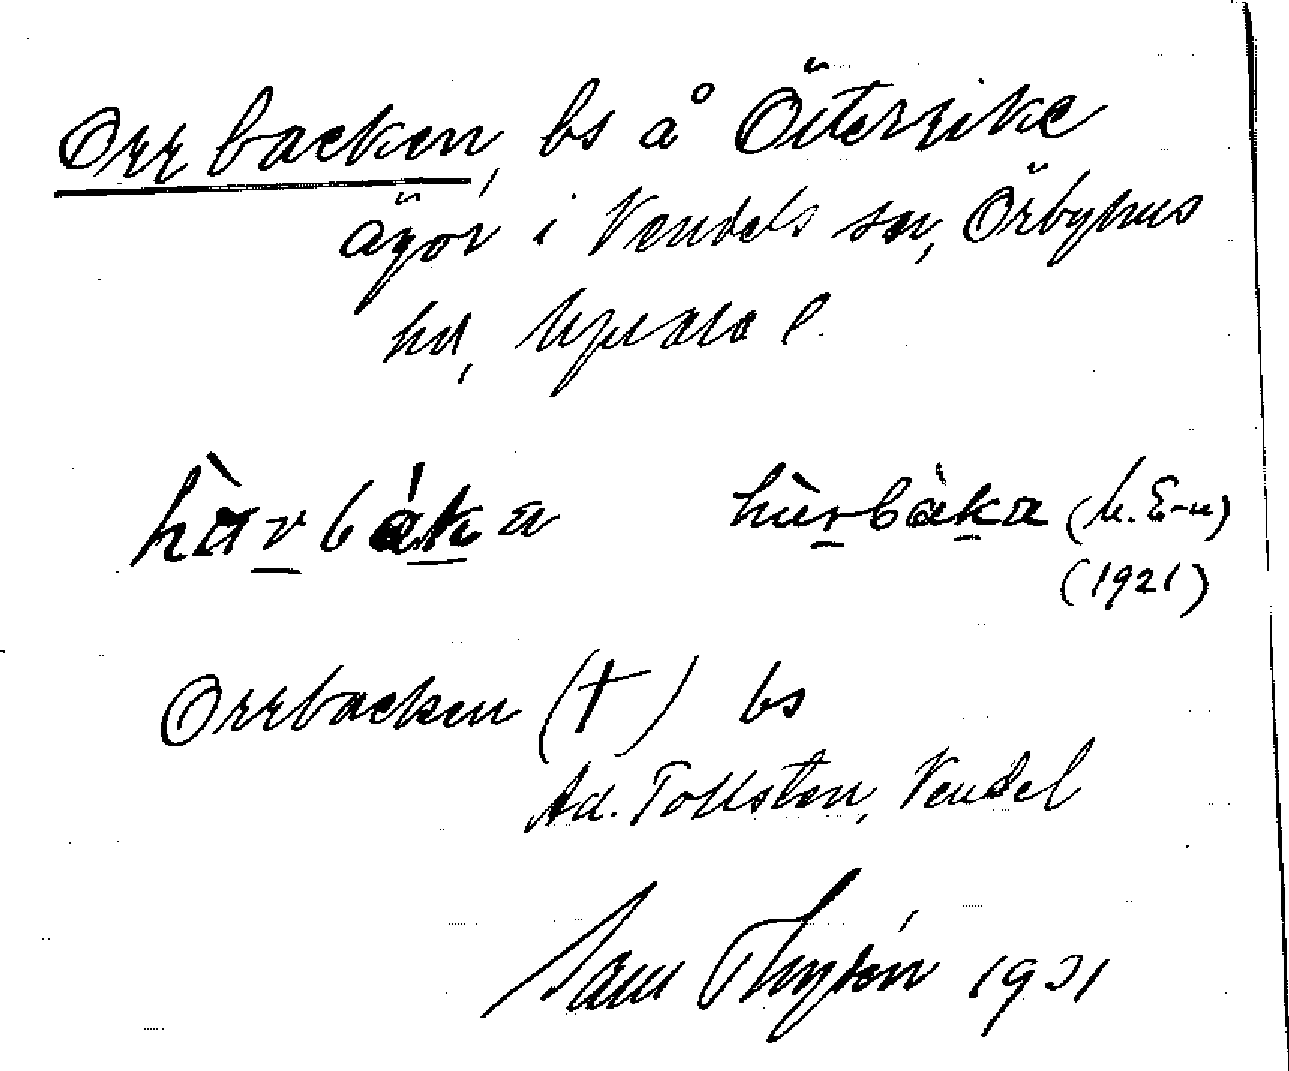 Orrbacken, bs å Österrike
ägor i Vendels sn, Örbyhus
hd, Uppsala l.
hàrbáka hùrbàka (M. E-n)
(1921)
Orrbacken (†) bs
Ad. Tollsten, Vendel
Sam Thydén 1931